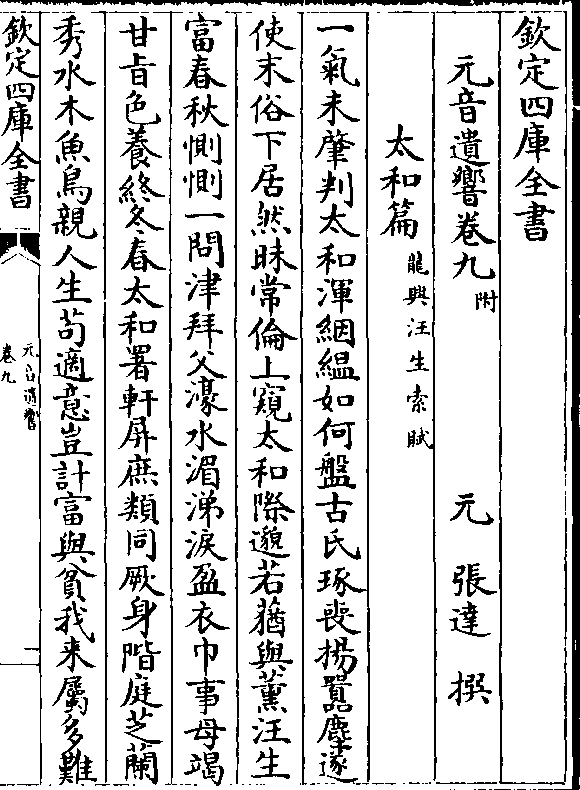 欽定四庫全書
元音遺響卷九 附 元 張達 撰
太和篇 龍興汪生索賦
一氣未肇判太和渾絪縕如何盤古氏琢喪揚囂塵遂
使末俗下居然昧常倫上窺太和際邈若蕕與薰汪生
富春秋惻惻一問津拜父濠水湄涕淚盈衣巾事母竭
甘旨色養終冬春太和署軒屏庶類同厥身階庭芝蘭
秀水木魚鳥親人生苟適意豈計富與貧我来屬多難
欽定四庫全書
元音遺響
卷九
一